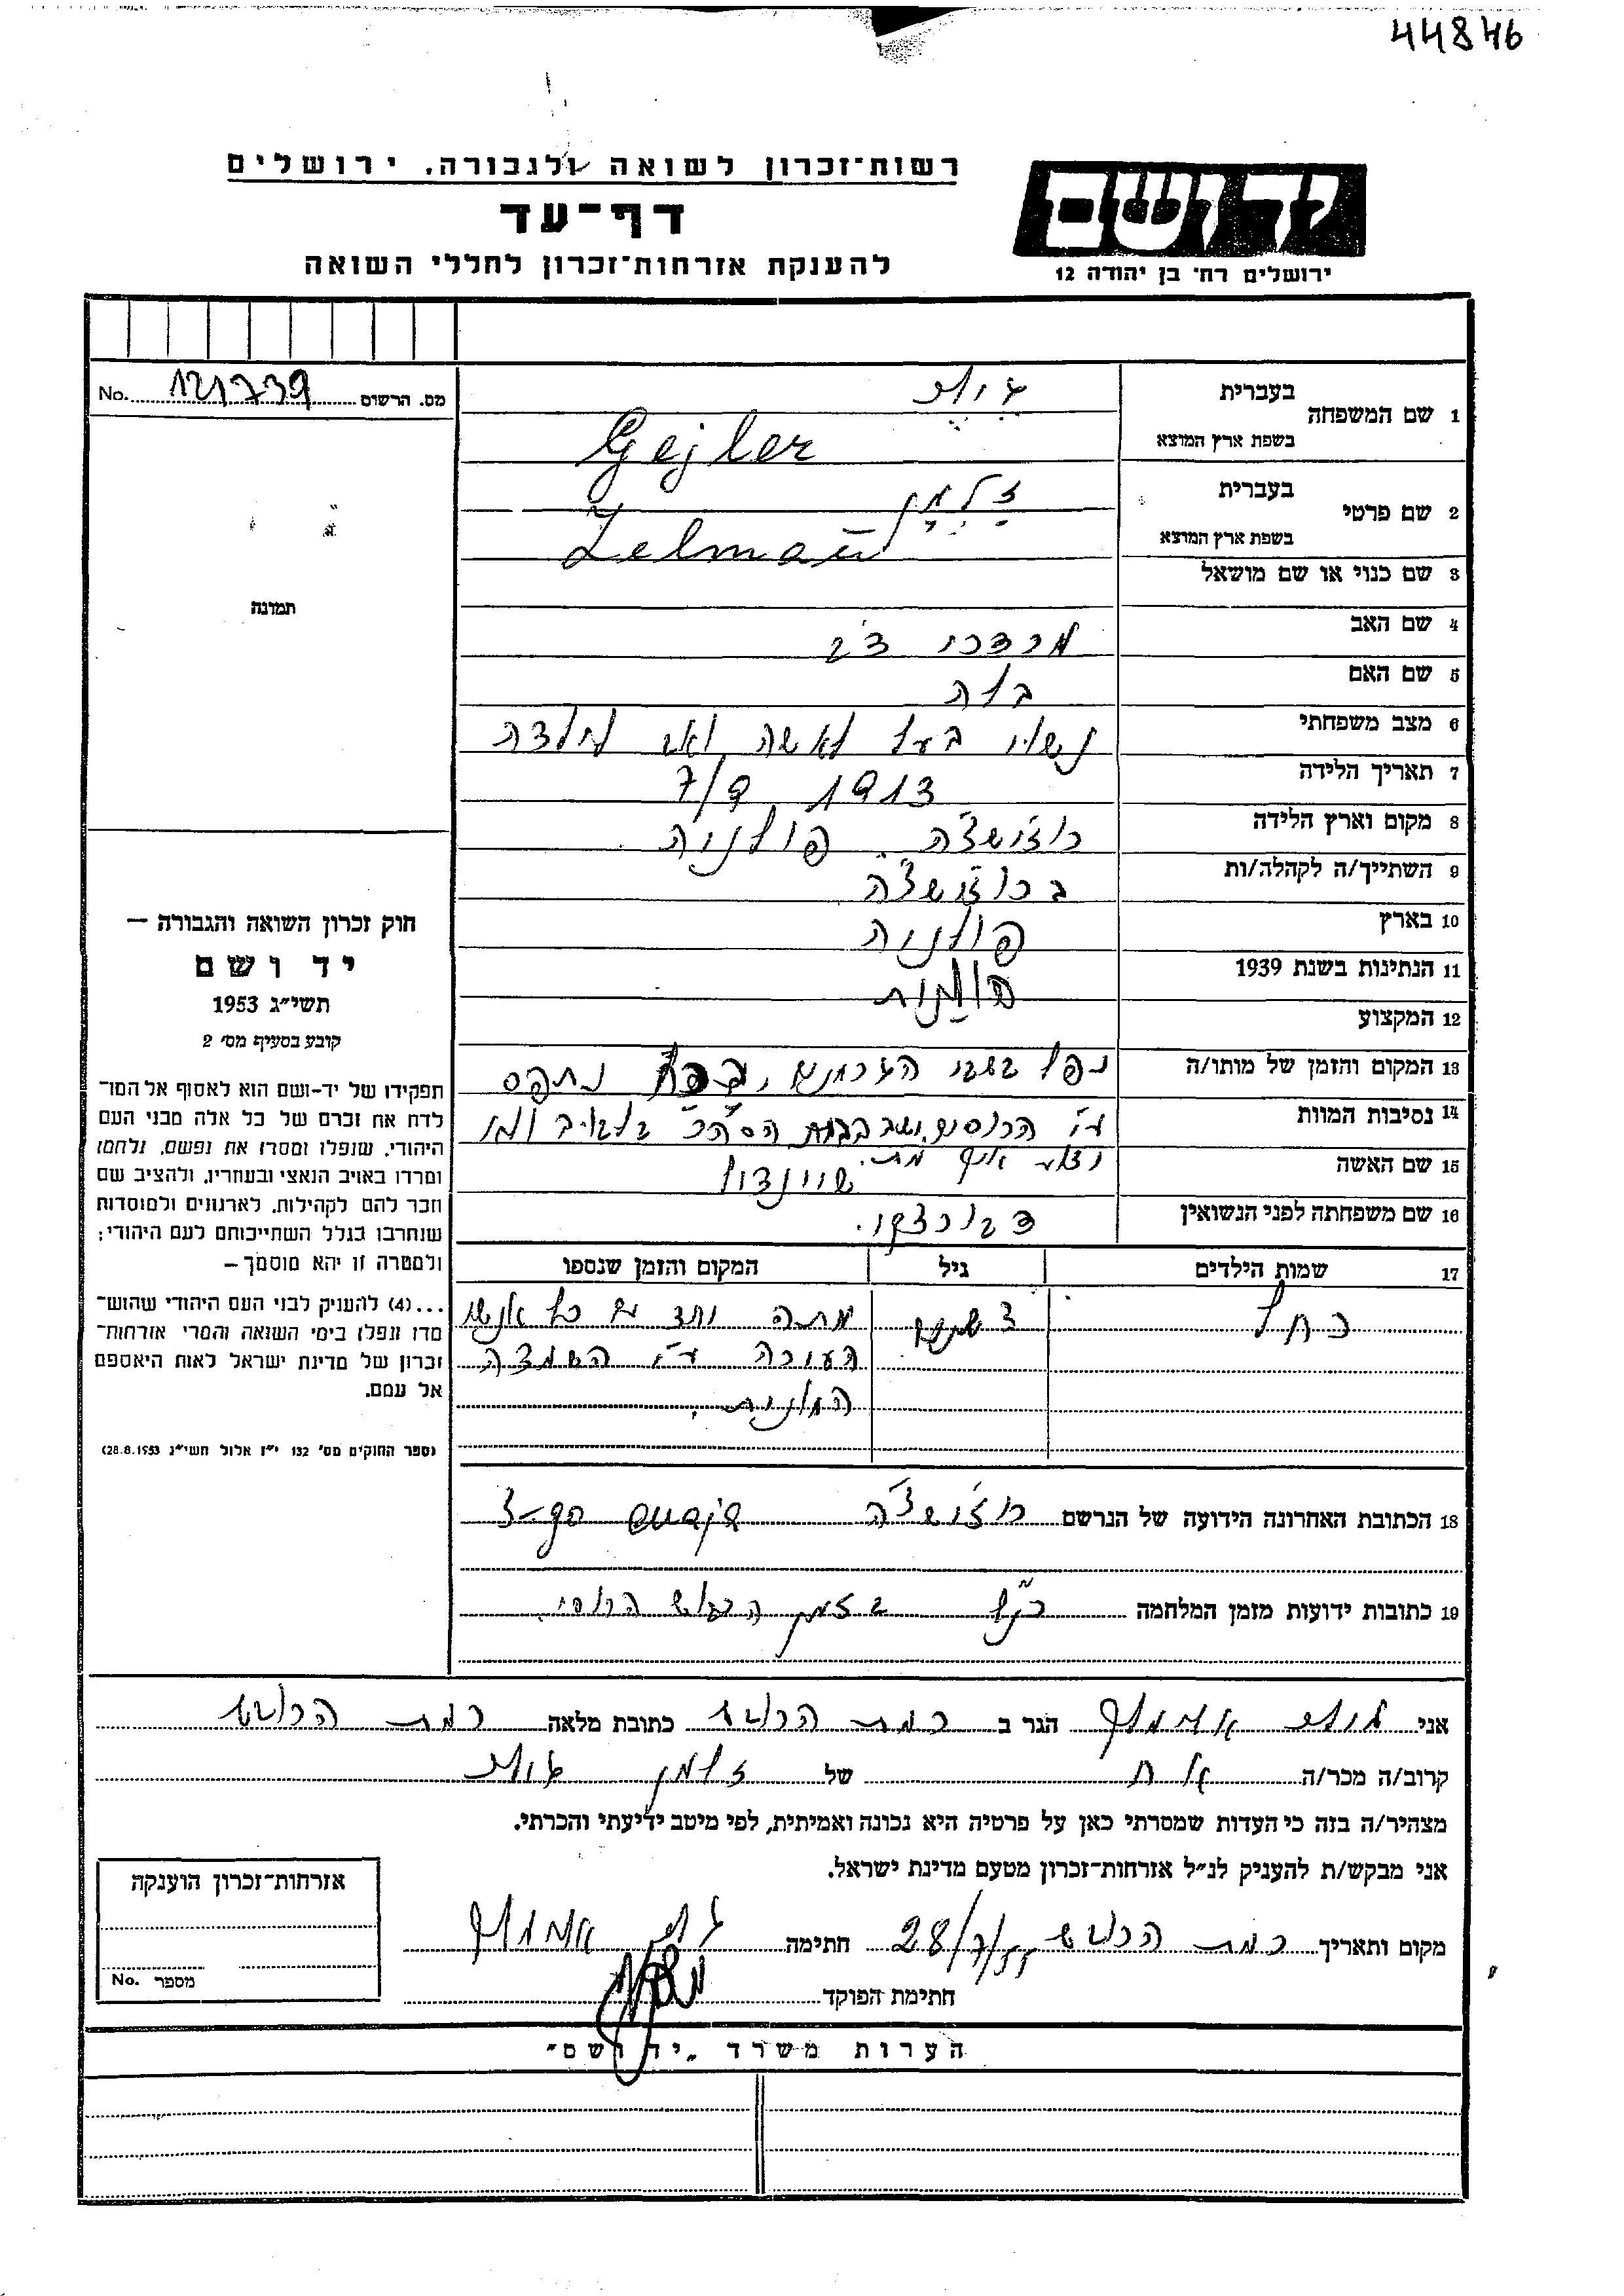 44846
רשות־זכרון לשואה ולגבורה, ירושלים
דף־עד
להענקת אזרחות־זכרון לחללי השואה
יד ושם
ירושלים רח׳ בן יהודה 12
מס. הרשום 121739 No.
תמונה
חוק זכרון השואה והגבורה —
יד ושם
תשי״ג 1953
קובע בסעיף מס׳ 2
תפקידו של יד-ושם הוא לאסוף אל המו־
לדת את זכרם של כל אלה מבני העם
היהודי, שנפלו ומסרו את נפשם, נלחמו
ומרדו באויב הנאצי ובעוזריו, ולהציב שם
וזכר להם לקהילות, לארגונים ולמוסדות
שנחרבו בגלל השתייכותם לעם היהודי;
ולמטרה זו יהא מוסמך —
...(4) להעניק לבני העם היהודי שהוש־
מדו ונפלו בימי השואה והמרי אזרחות־
זכרון של מדינת ישראל לאות היאספם
אל עמם.
(ספר החוקים מס׳ 132 י״ז אלול תשי״ג 28.8.1953)
1 שם המשפחה בעברית
בשפת ארץ המוצא Gejler
2 שם פרטי בעברית זלמן
בשפת ארץ המוצא Zelman
3 שם כנוי או שם מושאל
4 שם האב מרדכי צבי
5 שם האם
6 מצב משפחתי נשוי בעל לאשה ואב לילדה
7 תאריך הלידה 1913 7/9
8 מקום וארץ הלידה רוז׳ישצ׳ה פולניה
9 השתייך/ה לקהלה/ות ברוז׳ישצ׳ה
10 בארץ פולניה
11 הנתינות בשנת 1939 פולנית
12 המקצוע
13 המקום והזמן של מותו/ה נפל בשבי הגרמנים, נתפס
14 נסיבות המוות ע״י
15 שם האשה שיינדל
16 שם משפחתה לפני הנשואין
17 שמות הילדים גיל המקום והזמן שנספו
רחל 3 שנים מתה יחד עם כל אנשי
העירה ע״י השמדה
המונית.
18 הכתובת האחרונה הידועה של הנרשם רוז׳ישצ׳ה
19 כתובות ידועות מזמן המלחמה כנ״ל בזמן הכבוש הרוסי.
אני הגר ב רמת הכובש כתובת מלאה רמת הכובש
קרוב/ה מכר/ה אח של זלמן
מצהיר/ה בזה כי העדות שמסרתי כאן על פרטיה היא נכונה ואמיתית, לפי מיטב ידיעתי והכרתי.
אני מבקש/ת להעניק לנ״ל אזרחות־זכרון מטעם מדינת ישראל.
מקום ותאריך רמת הכובש 28/7/55 חתימה
חתימת הפוקד
אזרחות־זכרון הוענקה
מספר No.
הערות משרד „יד ושם״